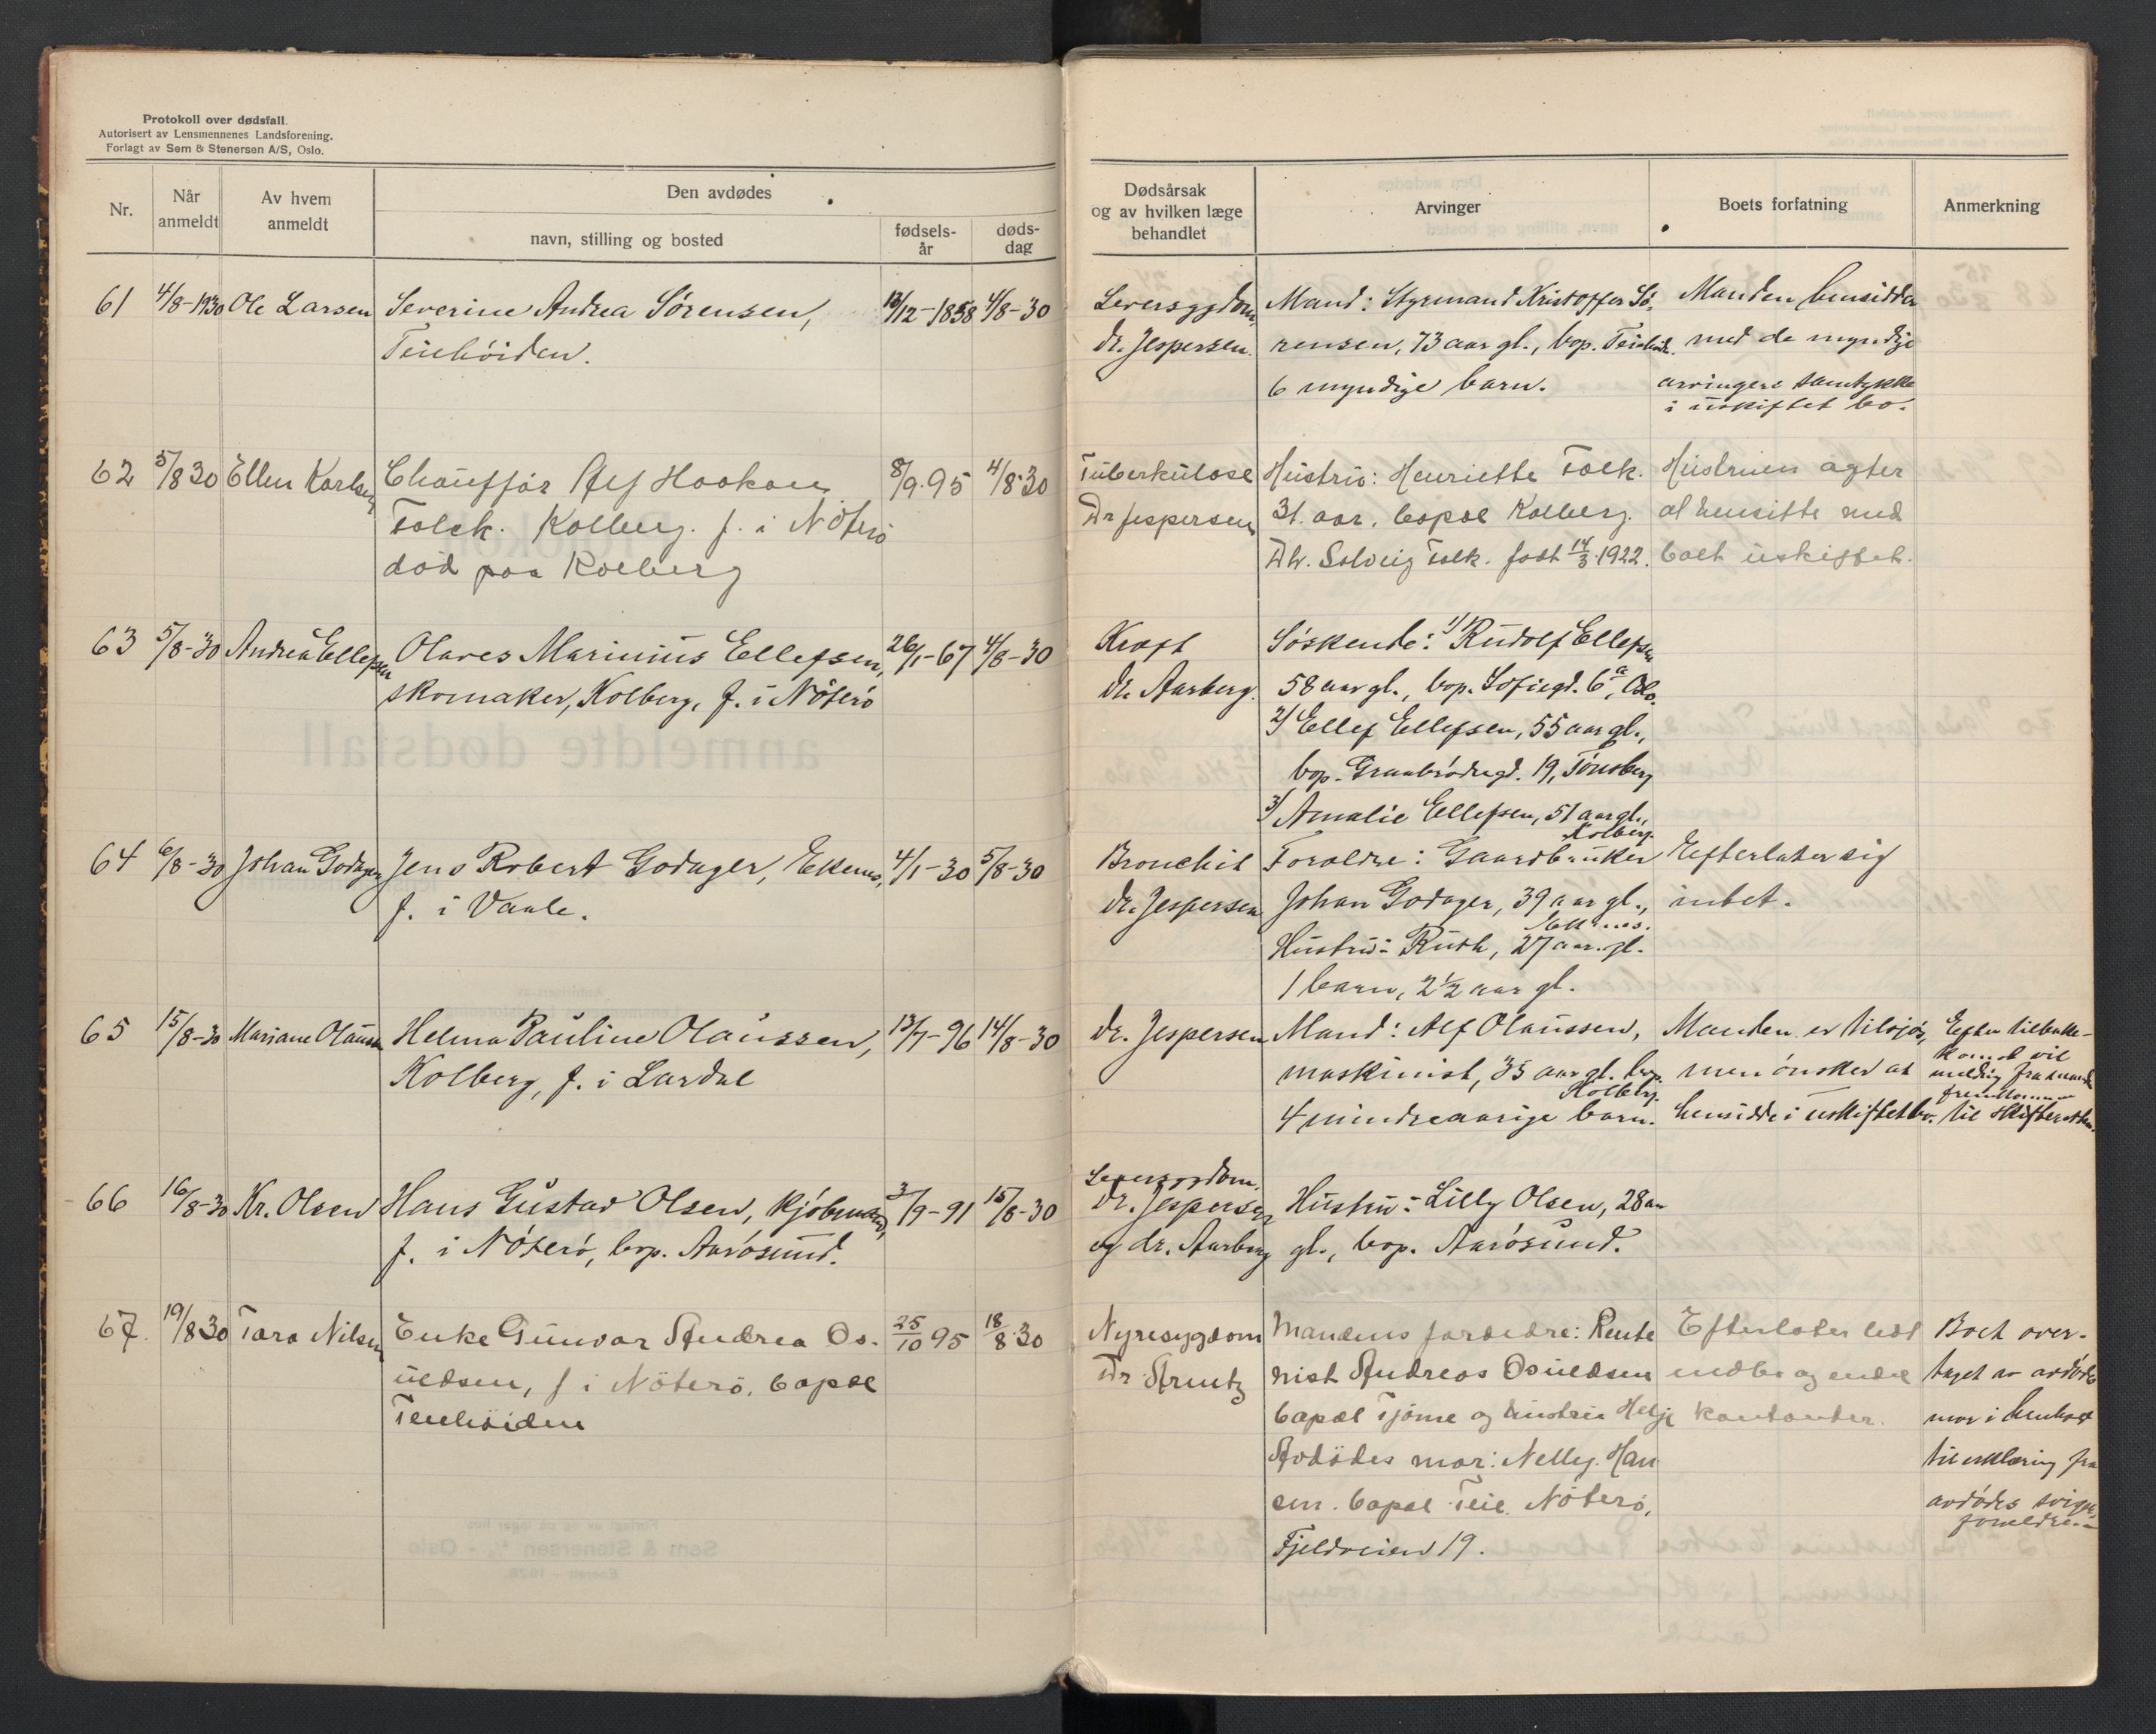 Protokoll over dødsfall.
Autorisert av Lensmennenes Landsforening.
Forlagt av Sem & Stenersen A/S, Oslo.
Nr.
Når anmeldt
Av hvem anmeldt
Den avdødes
navn, stilling og bosted
fødsels-år
døds-dag
Dødsårsak og av hvilken læge behandlet
Arvinger
Boets forfatning
Anmerkning
61 4/8-1930 Ole Larsen Severine Andrea Sørensen, /12-1858 4/8-30
Teiehöiden.
Leversygdom, Mand: Styrmand Kristoffer Sö- Manden hensidder
dr. Jespersen. rensen, 73 aar gl., bop. Teiehöid. med de myndige
6 myndige barn. arvingers samtykke
i uskiftet bo.
62 5/8 30 Ellen Karlsen Chauffør Alf Haakon 8/9.95 4/8.30
Falck. Kolberg. f. i Nöterö
död paa Kolberg
Tuberkulose Hustru: Henriette Falck. Hustruen agter
Dr Jespersen 31. aar. bopæl Kolberg. at hensitte med
Dtr. Solveig Falk. født 14/3 1922. boet uskiftet.
63 5/8-30 Andrea Ellefsen Olaves Marinius Ellefsen, 26/1-67 4/8-30
skomaker, Kolberg, f. i Nöterö
Kræft Söskende: 1/ Rudolf Ellefsen
dr. Aarberg. 58 aar gl., bop. Sofiegd. 6a, Oslo.
2/ Ellef Ellefsen, 55 aar gl.,
bop. Graabrödregd. 19, Tönsberg
3/ Amalie Ellefsen, 51 aar gl.,
Kolberg.
64 6/8-30 Johan Godager Jens Robert Godager, Ekenes, 4/1-30 5/8-30
f. i Vaale.
Bronchit Foreldre: Gaardbruker Efterlater sig
dr. Jespersen Johan Godager, 39 aar gl., intet.
Ekenes.
Hustru: Ruth, 27 aar. gl.
1 barn, 2½ aar gl.
65 15/8-30 Mariane Olaussen Helma Pauline Olaussen, 13/7-96 14/8-30
Kolberg, f. i Lardal
dr. Jespersen Mand: Alf Olaussen, Manden er tilsjös, Efter tilbake-
komst vil
maskinist, 35 aar gl. bop. men önsker at melding fra manden
Kolberg. fremkomme
4 mindreaarige barn. hensidde i uskiftet bo. til skifteretten.
66 16/8-30 Kr. Olsen Hans Gustav Olsen, kjöbmand, 3/9-91 15/8-30
f. i Nöterö, bop. Aarösund.
Leversygdom.
dr. Jespersen Hustru: Lilly Olsen, 28 aar
og dr. Aarberg gl., bop. Aarösund.
67. 19/8 30 Tara Nilsen Enke Gunvor Andrea Os- 25/10 95 18/8.30
uldsen, f i Nöterö, bopæl
Teiehöiden
Nyresygdom Mandens foreldre: Rente Efterlater lidt Boet over-
Dr Arentz nist Andreas Osuldsen indbo og endel taget av avdödes
bopæl Tjöme og hustru Helje kontanter. mor i henhold
Avdödes mor: Nelly Han til erklæring fra
sen. bopæl Teie Nöterö, avdödes sviger-
foreldre.
Fjeldveien 19.